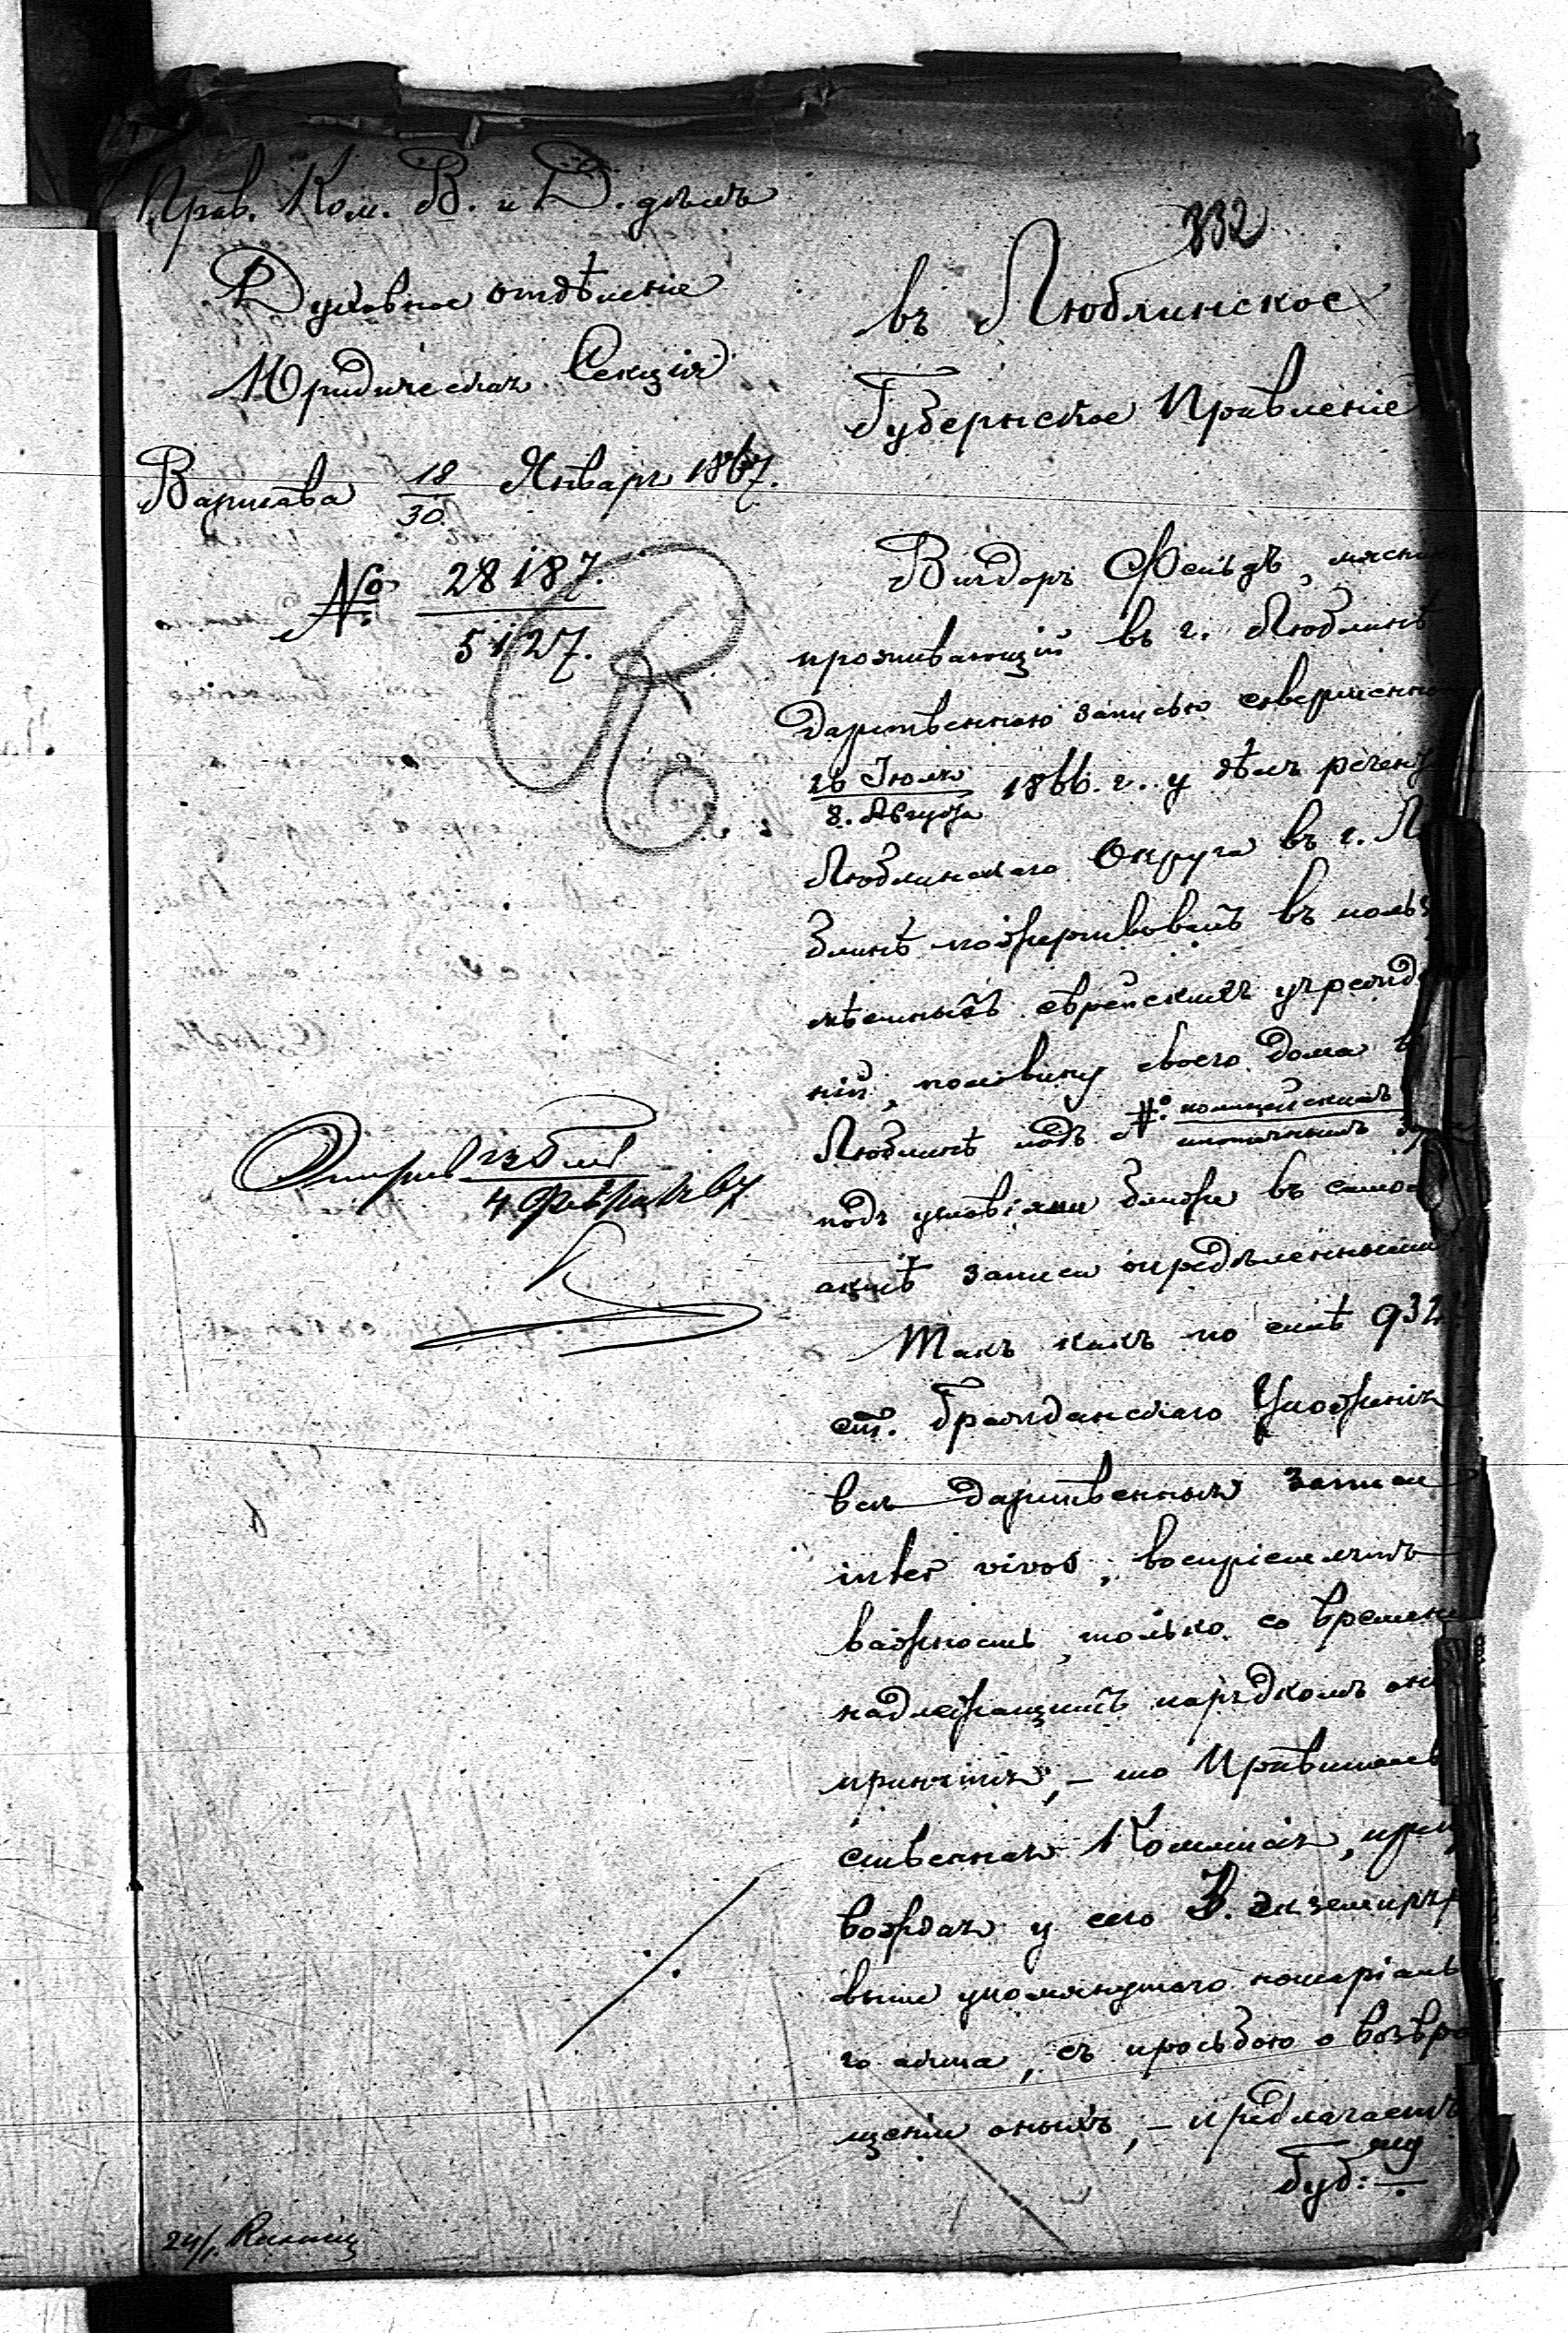 Прав. Ком. В. и Д. дѣлъ
Духовное отдѣленіе
Юридическая Секція
Варшава 18/30 Января 1867.
№ 28187./5127.
332
въ Люблинское
Губернское Правленіе
Вигдоръ Фельдъ,
проживающій въ г. Люблинѣ
дарственною записью совершенно
26 Іюля/8. Августа 1866. г. у дѣлъ
Люблинскаго Округа въ г. Л
блинѣ пожертвовалъ въ польз
мѣстныхъ еврейскихъ учрежд
ній, половину своего дома в
Люблинѣ подъ №: полицейскимъ/ипотечнымъ
подъ условіями ближе въ самом
актѣ записи опредѣленными.
Такъ какъ по силѣ 932.
ст. Гражданскаго Уложенія
всѣ дарственныя записи
inter vivos, воспріемлютъ
важность, только со времени
надлежащимъ порядкомъ
принятія, – то Правитель
ственная Коммисія, преп
вождая у сего 3. экземпляр
выше упомянутаго нотаріаль
го акта, съ просьбою о возвра
щеніи оныхъ, – предлагаетъ
Губ:
4 Февраля 67
24/1.